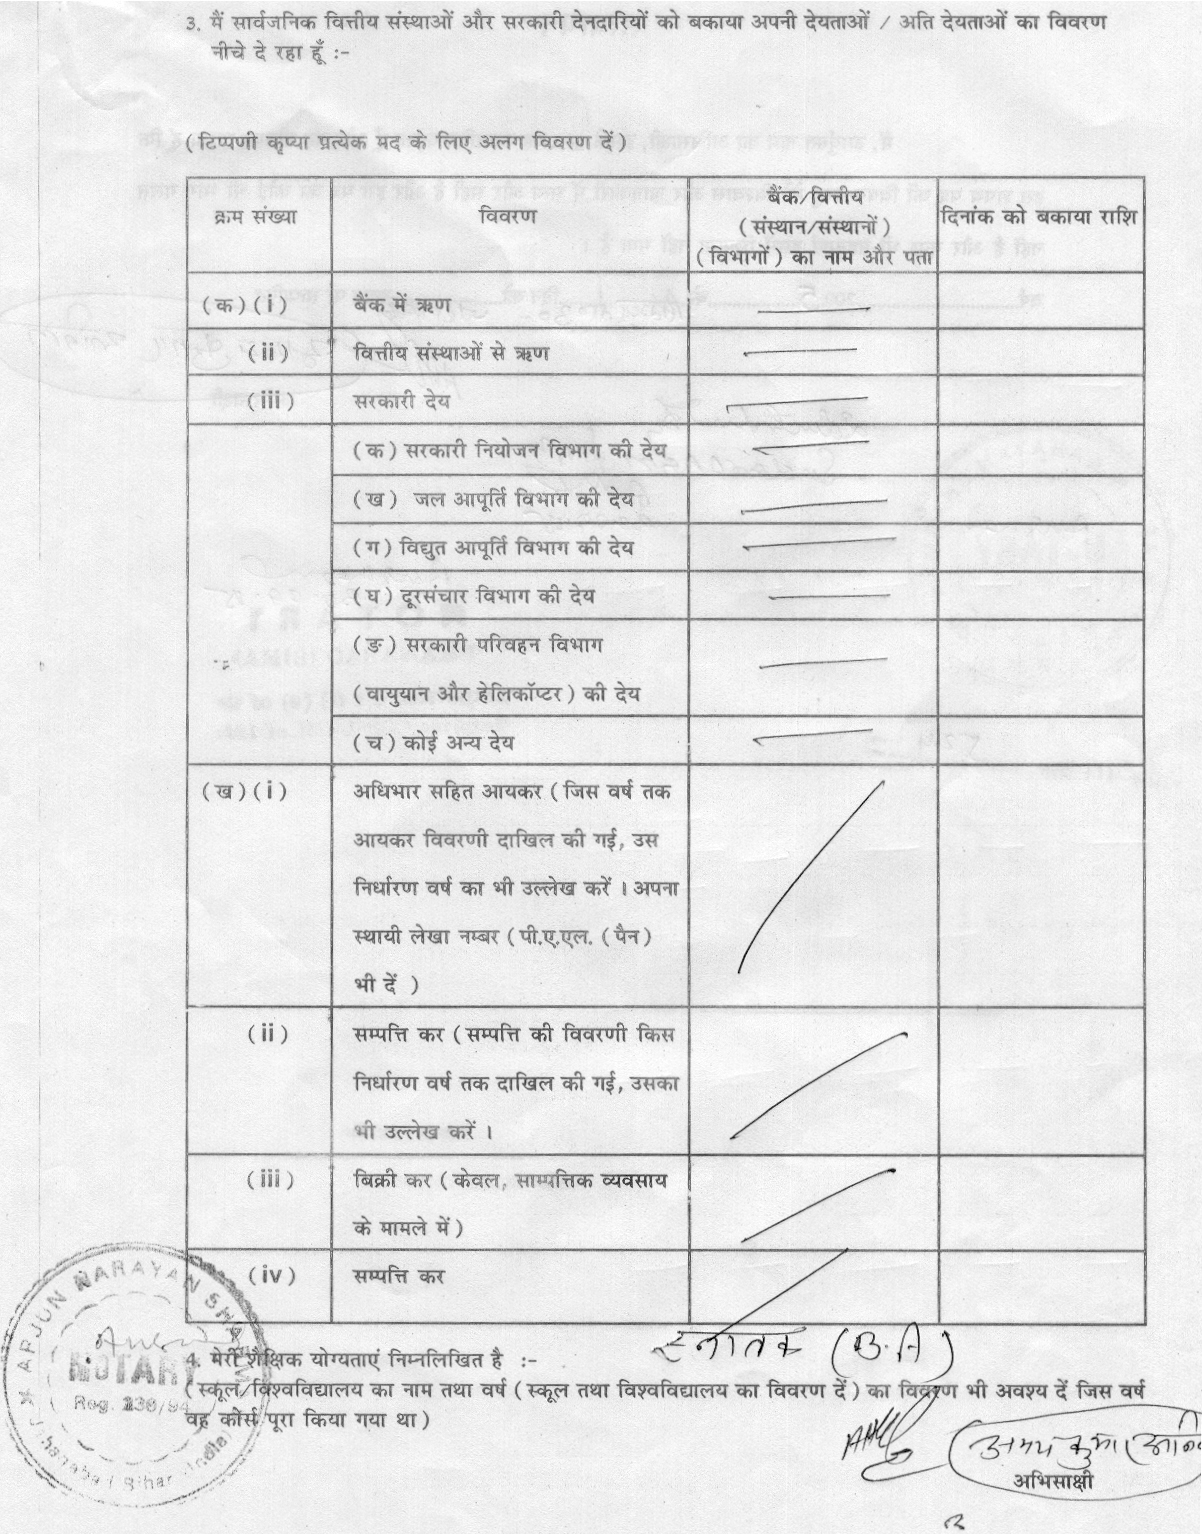 3. मैं सार्वजनिक वित्तीय संस्थाओं और सरकारी देनदारियों को बकाया अपनी देयताओं / अति देयताओं का विवरण
नीचे दे रहा हूँ :-
(टिप्पणी कृप्या प्रत्येक मद के लिए अलग विवरण दें)
क्रम संख्या विवरण बैंक/वित्तीय (संस्थान/संस्थानों) (विभागों) का नाम और पता दिनांक को बकाया राशि
(क) (i) बैंक में ऋण
(ii) वित्तीय संस्थाओं से ऋण
(iii) सरकारी देय
(क) सरकारी नियोजन विभाग की देय
(ख) जल आपूर्ति विभाग की देय
(ग) विद्युत आपूर्ति विभाग की देय
(घ) दूरसंचार विभाग की देय
(ङ) सरकारी परिवहन विभाग
(वायुयान और हेलिकॉप्टर) की देय
(च) कोई अन्य देय
(ख) (i) अधिभार सहित आयकर (जिस वर्ष तक
आयकर विवरणी दाखिल की गई, उस
निर्धारण वर्ष का भी उल्लेख करें । अपना
स्थायी लेखा नम्बर (पी.ए.एल. (पैन)
भी दें )
(ii) सम्पत्ति कर (सम्पत्ति की विवरणी किस
निर्धारण वर्ष तक दाखिल की गई, उसका
भी उल्लेख करें ।
(iii) बिक्री कर (केवल, साम्पत्तिक व्यवसाय
के मामले में)
(iv) सम्पत्ति कर
स्नातक (B.A)
4. मेरी शैक्षिक योग्यताएं निम्नलिखित है :-
(स्कूल/विश्वविद्यालय का नाम तथा वर्ष (स्कूल तथा विश्वविद्यालय का विवरण दें) का विवरण भी अवश्य दें जिस वर्ष
वह कोर्स पूरा किया गया था)
अभिसाक्षी
ARJUN NARAYAN
NOTARY
Reg. 236/94
Bihar (India)